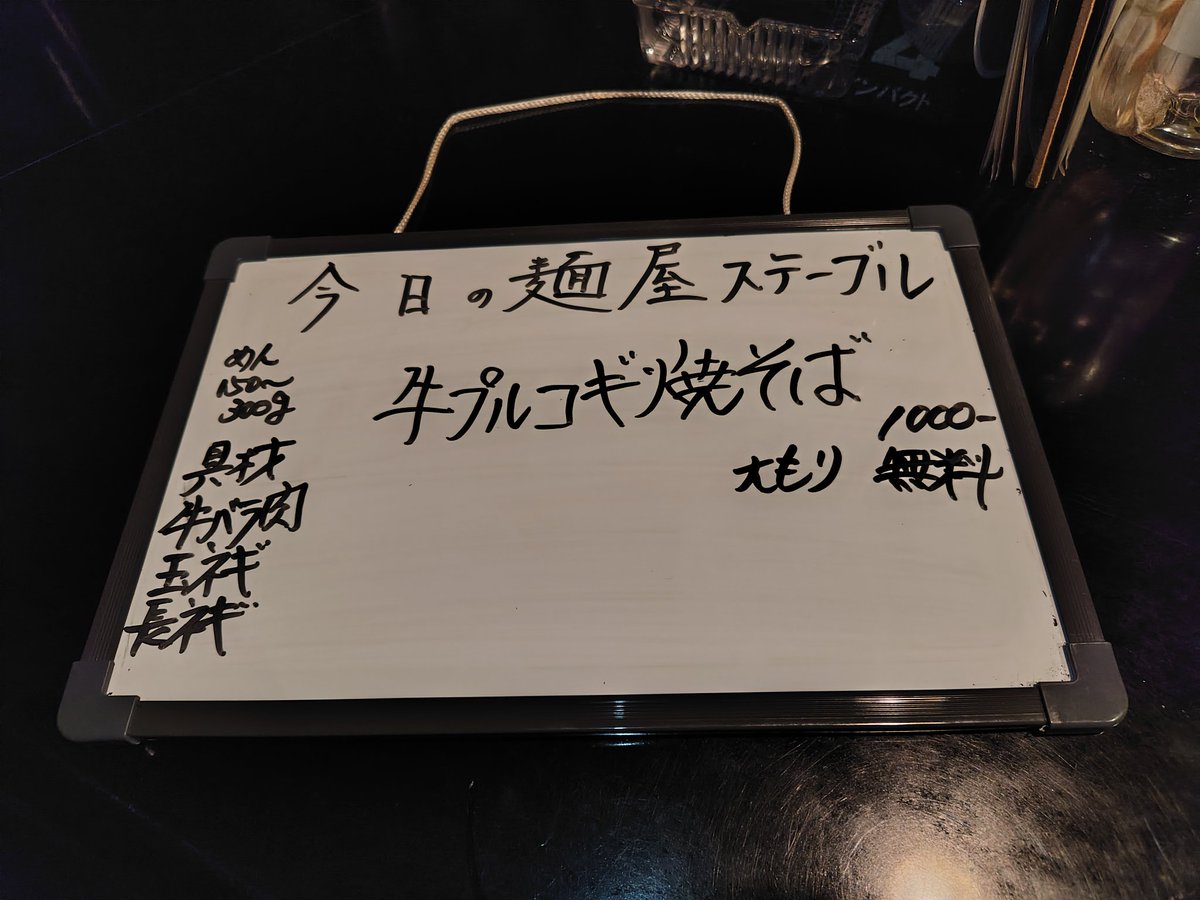 今日の麺屋ステーブル
牛プルコギ焼そば
1000-
大もり 無料
めん
150〜
300g
具材
牛バラ肉
玉ネギ
長ネギ
4
ンパクト